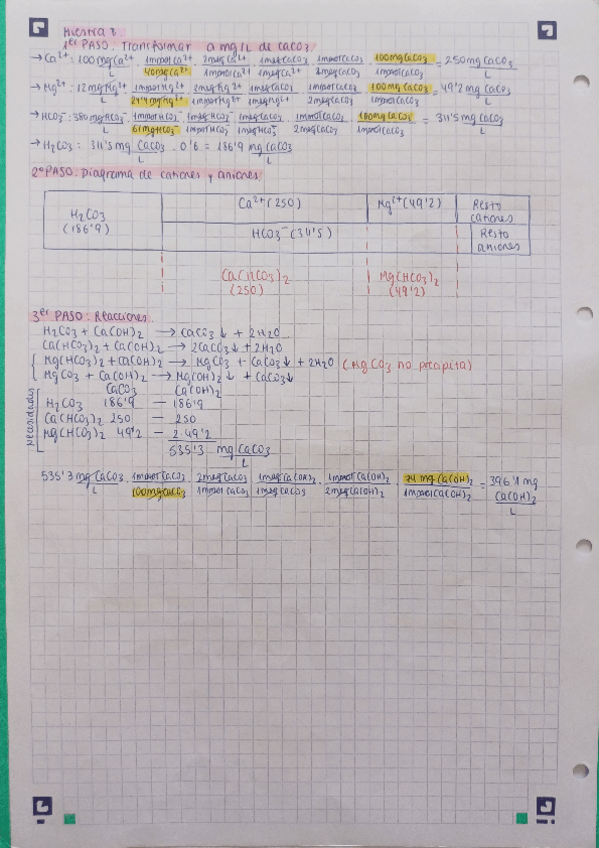 Muestra B
1er PASO: Transformar a mg/L de CaCO3
→ Ca2+: 100 mg Ca2+/L · 1mmol Ca2+/40mg Ca2+ · 2meq Ca2+/1mmol Ca2+ · 1meq CaCO3/1meq Ca2+ · 1mmol CaCO3/2meq CaCO3 · 100mg CaCO3/1mmol CaCO3 = 250 mg CaCO3/L
→ Mg2+: 12 mg Mg2+/L · 1mmol Mg2+/24'4 mg Mg2+ · 2meq Mg2+/1mmol Mg2+ · 1meq CaCO3/1meq Mg2+ · 1mmol CaCO3/2meq CaCO3 · 100mg CaCO3/1mmol CaCO3 = 49'2 mg CaCO3/L
→ HCO3-: 380 mg HCO3-/L · 1mmol HCO3-/61mg HCO3- · 1meq HCO3-/1mmol HCO3- · 1meq CaCO3/1meq HCO3- · 1mmol CaCO3/2meq CaCO3 · 100mg CaCO3/1mmol CaCO3 = 311'5 mg CaCO3/L
→ H2CO3: 311'5 mg CaCO3/L · 0'6 = 186'9 mg CaCO3/L
2º PASO: Diagrama de cationes y aniones
H2CO3 (186'9) Ca2+ (250) Mg2+ (49'2) Resto cationes
HCO3- (311'5) Resto aniones
Ca(HCO3)2 Mg(HCO3)2
(250) (49'2)
3er PASO: Reacciones
H2CO3 + Ca(OH)2 → CaCO3↓ + 2H2O
Ca(HCO3)2 + Ca(OH)2 → 2CaCO3↓ + 2H2O
Mg(HCO3)2 + Ca(OH)2 → MgCO3 + CaCO3↓ + 2H2O (MgCO3 no precipita)
MgCO3 + Ca(OH)2 → Mg(OH)2↓ + CaCO3↓
necesidades
CaCO3 Ca(OH)2
H2CO3 186'9 — 186'9
Ca(HCO3)2 250 — 250
Mg(HCO3)2 49'2 — 2·49'2
535'3 mg CaCO3/L
535'3 mg CaCO3/L · 1mmol CaCO3/100mg CaCO3 · 2meq CaCO3/1mmol CaCO3 · 1meq Ca(OH)2/1meq CaCO3 · 1mmol Ca(OH)2/2meq Ca(OH)2 · 74 mg Ca(OH)2/1mmol Ca(OH)2 = 396'1 mg Ca(OH)2/L